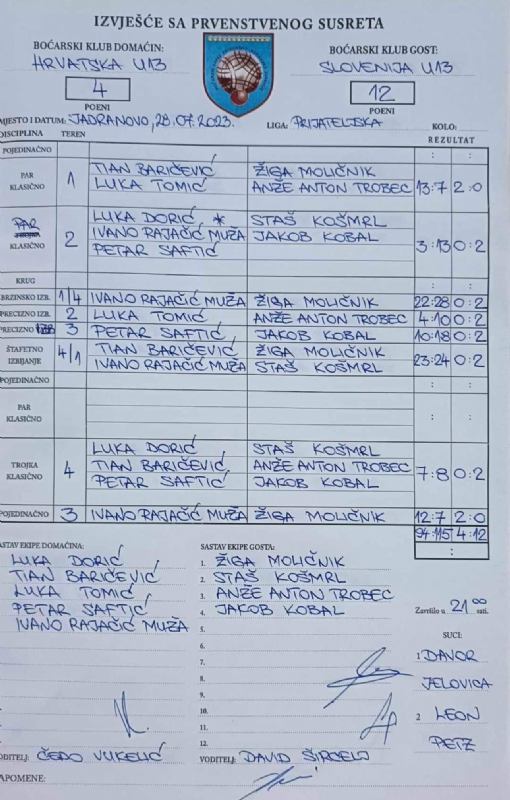 IZVJEŠĆE SA PRVENSTVENOG SUSRETA
BOĆARSKI KLUB DOMAĆIN:
HRVATSKA U13
BOĆARSKI KLUB GOST:
SLOVENIJA U13
4
POENI
12
POENI
MJESTO I DATUM: JADRANOVO, 28.07.2023. LIGA: PRIJATELJSKA KOLO:
DISCIPLINA TEREN REZULTAT
POJEDINAČNO : :
PAR KLASIČNO 1 TIAN BARIČEVIĆ ŽIGA MOLIČNIK 13:7 2:0
LUKA TOMIĆ ANŽE ANTON TROBEC
PAR KLASIČNO 2 LUKA DORIĆ, * STAŠ KOŠMRL 3:13 0:2
IVANO RAJAČIĆ MUŽA JAKOB KOBAL
PETAR SAFTIĆ
KRUG : :
BRZINSKO IZB. 1/4 IVANO RAJAČIĆ MUŽA ŽIGA MOLIČNIK 22:28 0:2
PRECIZNO IZB. 2 LUKA TOMIĆ ANŽE ANTON TROBEC 4:10 0:2
PRECIZNO IZB 3 PETAR SAFTIĆ JAKOB KOBAL 10:18 0:2
ŠTAFETNO IZBIJANJE 4/1 TIAN BARIČEVIĆ ŽIGA MOLIČNIK 23:24 0:2
IVANO RAJAČIĆ MUŽA STAŠ KOŠMRL
POJEDINAČNO
PAR KLASIČNO : :
TROJKA KLASIČNO 4 LUKA DORIĆ STAŠ KOŠMRL 7:8 0:2
TIAN BARIČEVIĆ, ANŽE ANTON TROBEC
PETAR SAFTIĆ JAKOB KOBAL
POJEDINAČNO 3 IVANO RAJAČIĆ MUŽA ŽIGA MOLIČNIK 12:7 2:0
94:115 4:12
:
SASTAV EKIPE DOMAĆINA:
LUKA DORIĆ
TIAN BARIČEVIĆ
LUKA TOMIĆ
PETAR SAFTIĆ
IVANO RAJAČIĆ MUŽA
SASTAV EKIPE GOSTA:
1. ŽIGA MOLIČNIK
2. STAŠ KOŠMRL
3. ANŽE ANTON TROBEC
4. JAKOB KOBAL
5.
6.
7.
8.
9.
10.
11.
12.
Završilo u 21 00 sati.
SUCI:
1 DAVOR
JELOVICA
2 LEON
PETZ
VODITELJ: ČEDO VUKELIĆ
VODITELJ: DAVID ŠIRCELJ
NAPOMENE: